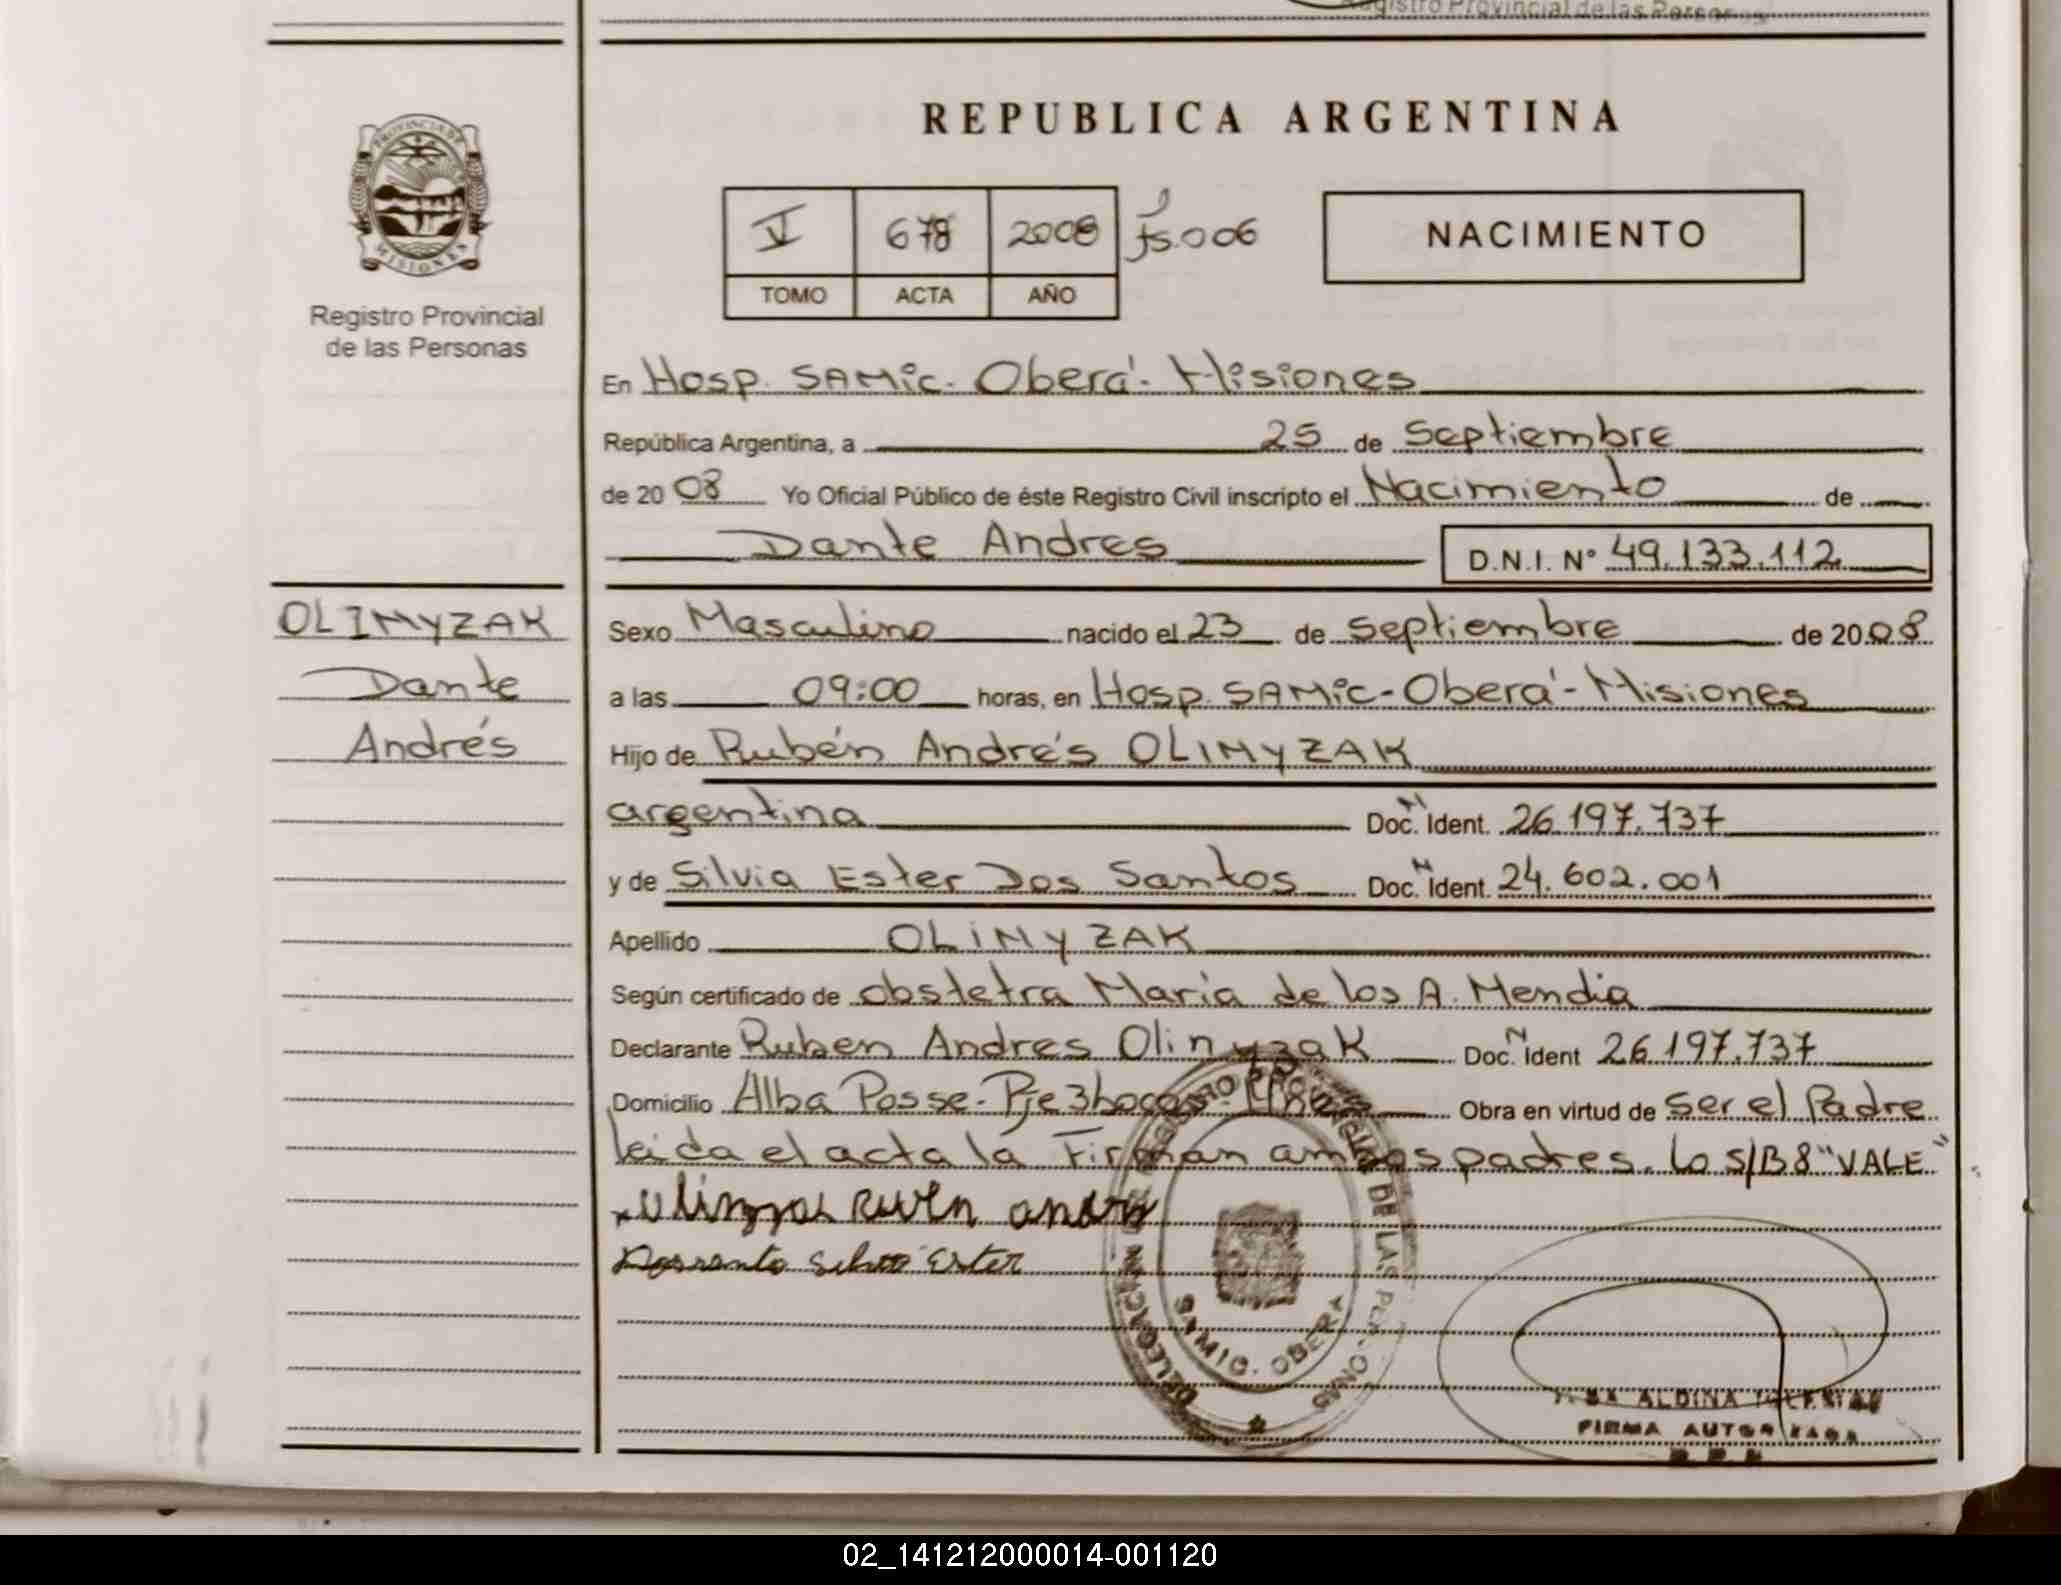 Registro Provincial de las Personas
REPUBLICA ARGENTINA
PROVINCIA DE
MISIONES
Registro Provincial
de las Personas
V 678 2008
TOMO ACTA AÑO
NACIMIENTO
En Hosp. SAMic. Oberá - Misiones
República Argentina, a 25 de Septiembre
de 2008 Yo Oficial Público de éste Registro Civil inscripto el Nacimiento de
Dante Andres D.N.I. Nº 49.133.112
OLIMYZAK
Dante
Andrés
Sexo Masculino nacido el 23 de Septiembre de 2008
a las 09:00 horas, en Hosp. SAMic - Oberá - Misiones
Hijo de Rubén Andrés OLIMYZAK
argentina Doc. N Ident. 26.197.737
y de Silvia Ester Dos Santos Doc. N Ident. 24.602.001
Apellido OLIMYZAK
Según certificado de obstetra María de los A. Mendia
Declarante Ruben Andres Olinyzak Doc. N Ident 26.197.737
Domicilio Alba Posse - Pje 3 bocas Obra en virtud de Ser el Padre
leida el acta la Firman ambos padres. Lo S/B 8 "VALE"
Ester
DELEGACION REGISTRO PROVINCIAL DE LAS PERSONAS
SAMIC. OBERA
ALDINA
FIRMA AUTORIZADA
02_141212000014-001120